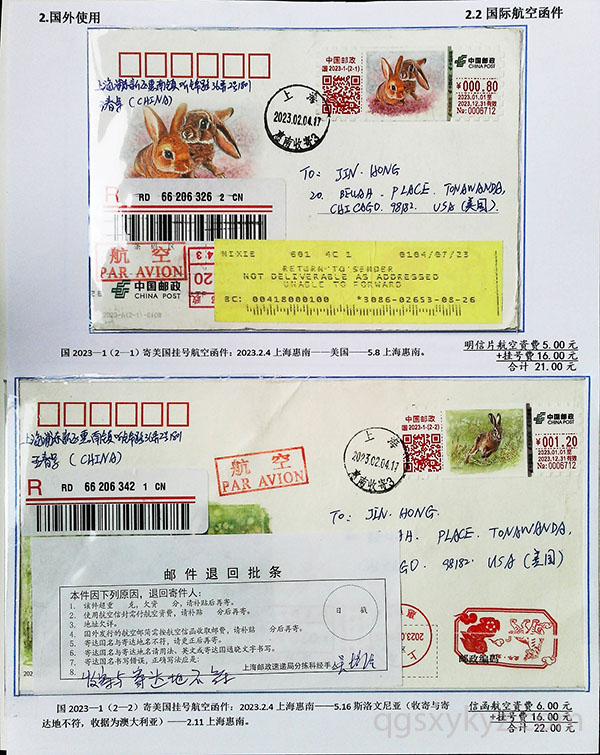 2.国外使用
2.2 国际航空函件
中国邮政
国2023-1-(2-1)
中国邮政
CHINA POST
¥000.80
2023.01.01至
2023.12.31有效
No: 0006712
(CHINA)
上海
2023.02.04.17
惠南收寄3
TO: JIN. HONG
20. PLACE. TONAWANDA,
CHICAGO. 98182. USA (美国).
R
RD 66 206 326 2 CN
航空
PAR AVION
中国邮政
CHINA POST
NIXIE 601 4C 1 0104/07/23
RETURN TO SENDER
NOT DELIVERABLE AS ADDRESSED
UNABLE TO FORWARD
BC: 00418000100 *3086-02653-08-26
国 2023—1（2—1）寄美国挂号航空函件：2023.2.4 上海惠南——美国——5.8 上海惠南。
明信片航空资费 5.00 元
+挂号费 16.00 元
合计 21.00 元
中国邮政
国2023-1-(2-2)
中国邮政
CHINA POST
¥001.20
2023.01.01至
2023.12.31有效
No: 0006712
(CHINA)
上海
2023.02.04.17
惠南收寄3
R
RD 66 206 342 1 CN
航空
PAR AVION
To: JIN. HONG.
PLACE. TONAWANDA,
98182. USA (美国)
邮件退回批条
本件因下列原因，退回寄件人：
1. 该件超重 克，欠资 分，请补贴后再寄。
2. 使用航空信封需付航空资费，请补贴 分后再寄。
3. 地址欠详。
4. 国外发行的航空邮简需按航空信函收取邮费，请补贴 分后再寄。
5. 寄达国名与寄达地名不符，请更正后再寄。
6. 寄达国名与地名请用法、英文或寄达国通晓文字书写。
7. 寄达国名书写错误，正确写法应是：
8. 收寄与寄达地不符
日戳
上海邮政速递局分拣科经手人
邮政编码
国 2023—1（2—2）寄美国挂号航空函件：2023.2.4 上海惠南——5.16 斯洛文尼亚（收寄与寄
达地不符，收据为澳大利亚）——2.11 上海惠南。
信函航空资费 6.00 元
+挂号费 16.00 元
合计 22.00 元